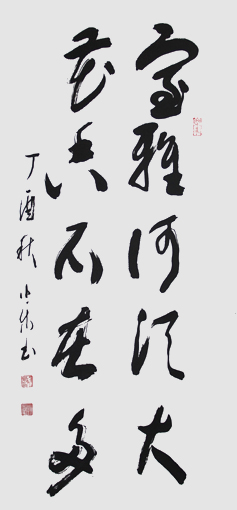 室雅何须大
花香不在多
丁酉秋